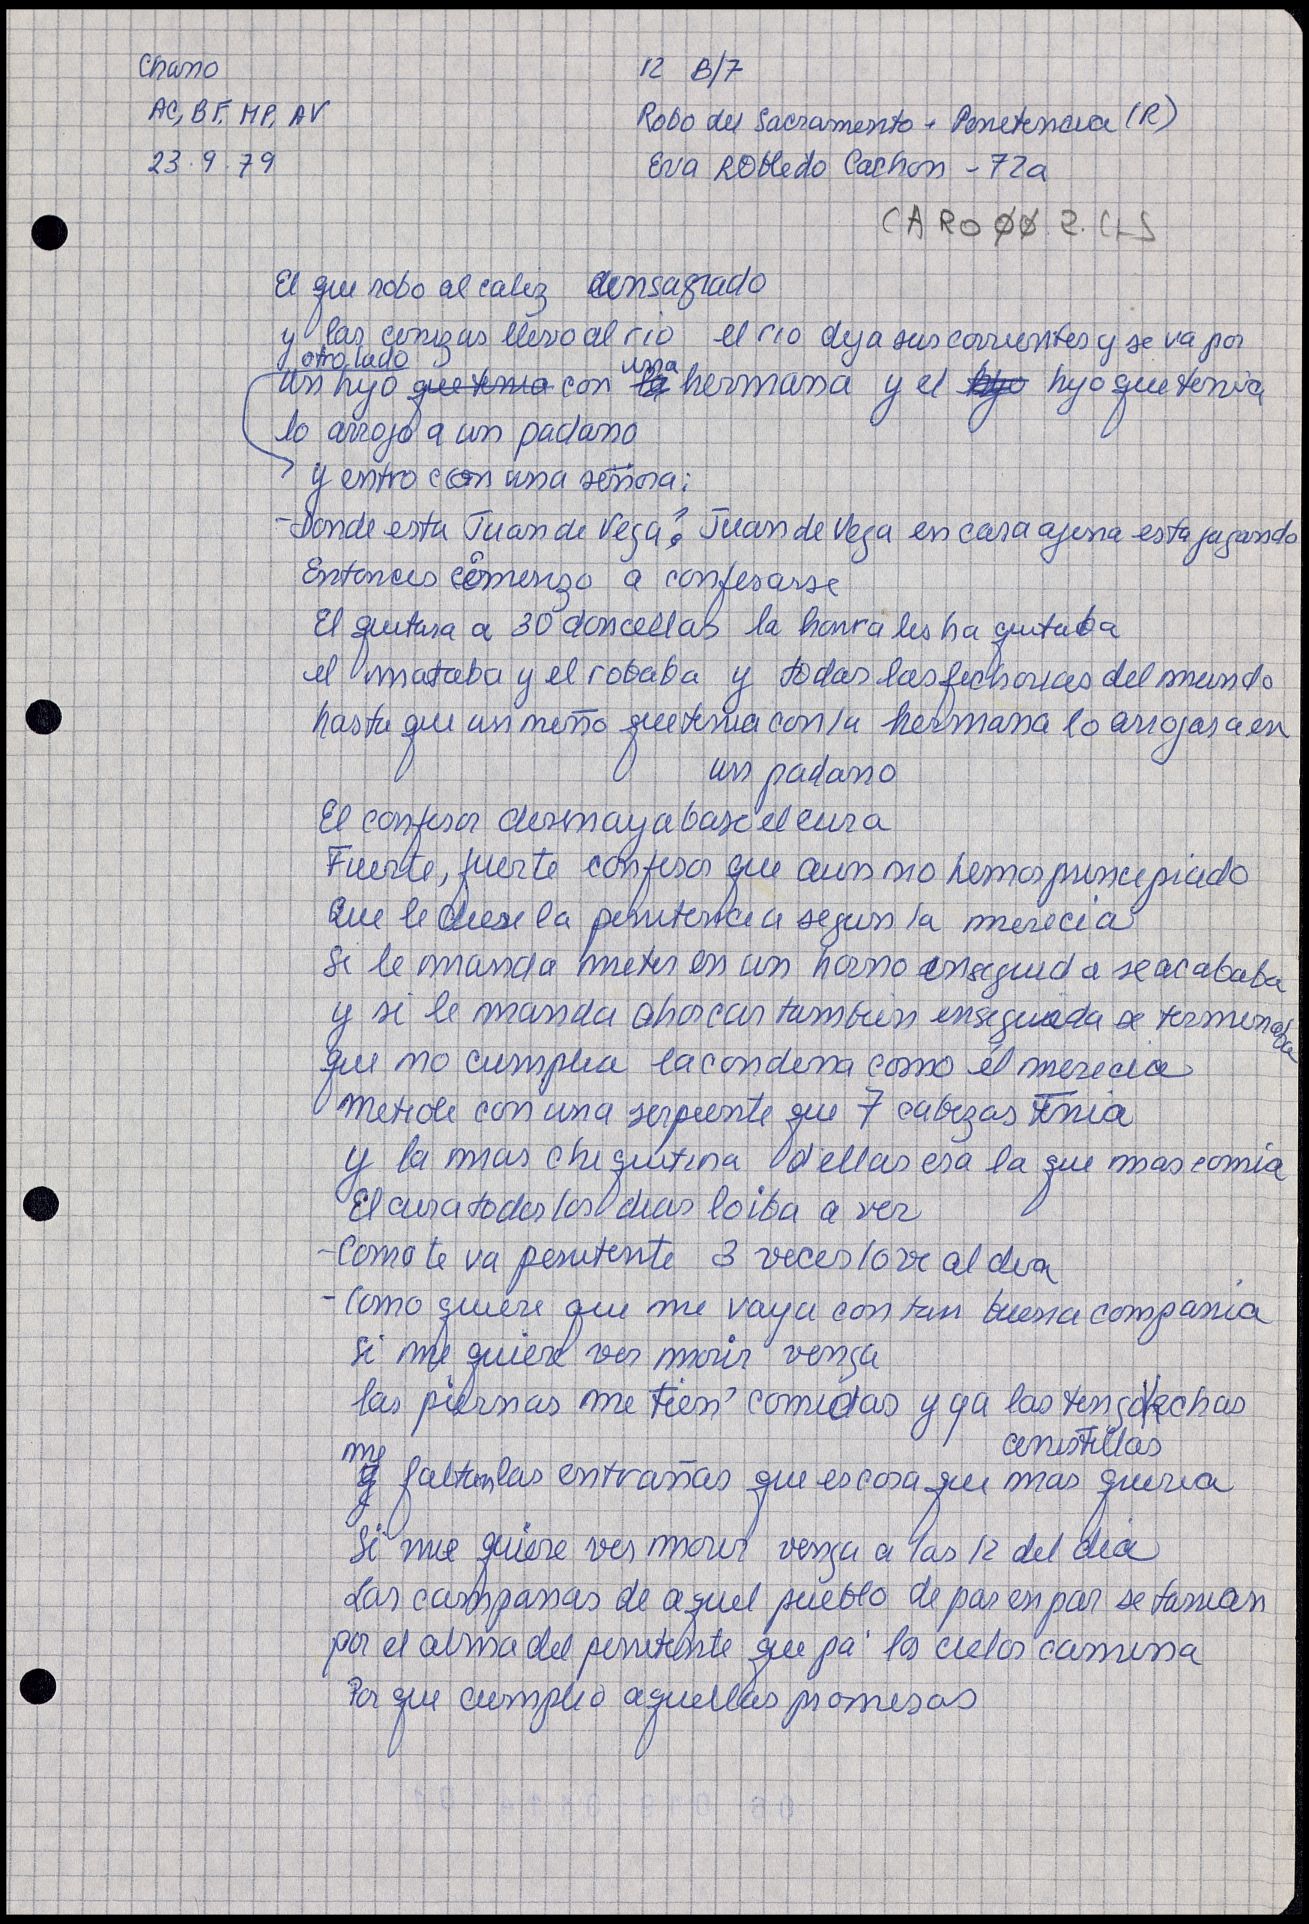 Chano
AC, BF, MP, AV
23.9.79
12 B/7
Robo del Sacramento + Penitencia (R)
Eva Robledo Cachon - 72a
CARO ØØ 2.CL2
El que robo al caliz consagrado
y las cenizas llevo al rio el rio deja sus corrientes y se va por
otro lado
un hijo que tenia con la una hermana y el hijo hijo que tenia
lo arrojo a un padano
y entro con una señora:
- Donde esta Juan de Vega? Juan de Vega en casa ajena esta jugando
Entonces comenzo a confesarse
El quitara a 30 doncellas la honra les ha quitaba
el mataba y el robaba y todas las fechorias del mundo
hasta que un niño que tenia con la hermana lo arrojara en
un padano
El confesor desmayabase el cura
Fuerte, fuerte confesor que aun no hemos principiado
Que le diese la penitencia segun la merecia
Si le manda meter en un horno enseguida se acababa
y si le manda ahorcar tambien enseguida se terminaba
que no cumplia la condena como él merecia
Metiole con una serpiente que 7 cabezas tenia
y la mas chiquitina d'ellas era la que mas comia
El cura todos los dias lo iba a ver
- Como te va penitente 3 veces lo ve al dia
- Como quiere que me vaya con tan buena compania
Si me quiere ver morir venga
las piernas me tien' comidas y ya las tengo hechas
canistillas
me faltan las entrañas que es cosa que mas queria
Si me quiere ver morir venga a las 12 del dia
Las campanas de aquel pueblo de par en par se tanian
por el alma del penitente que pa' los cielos camina
Por que cumplio aquellas promesas